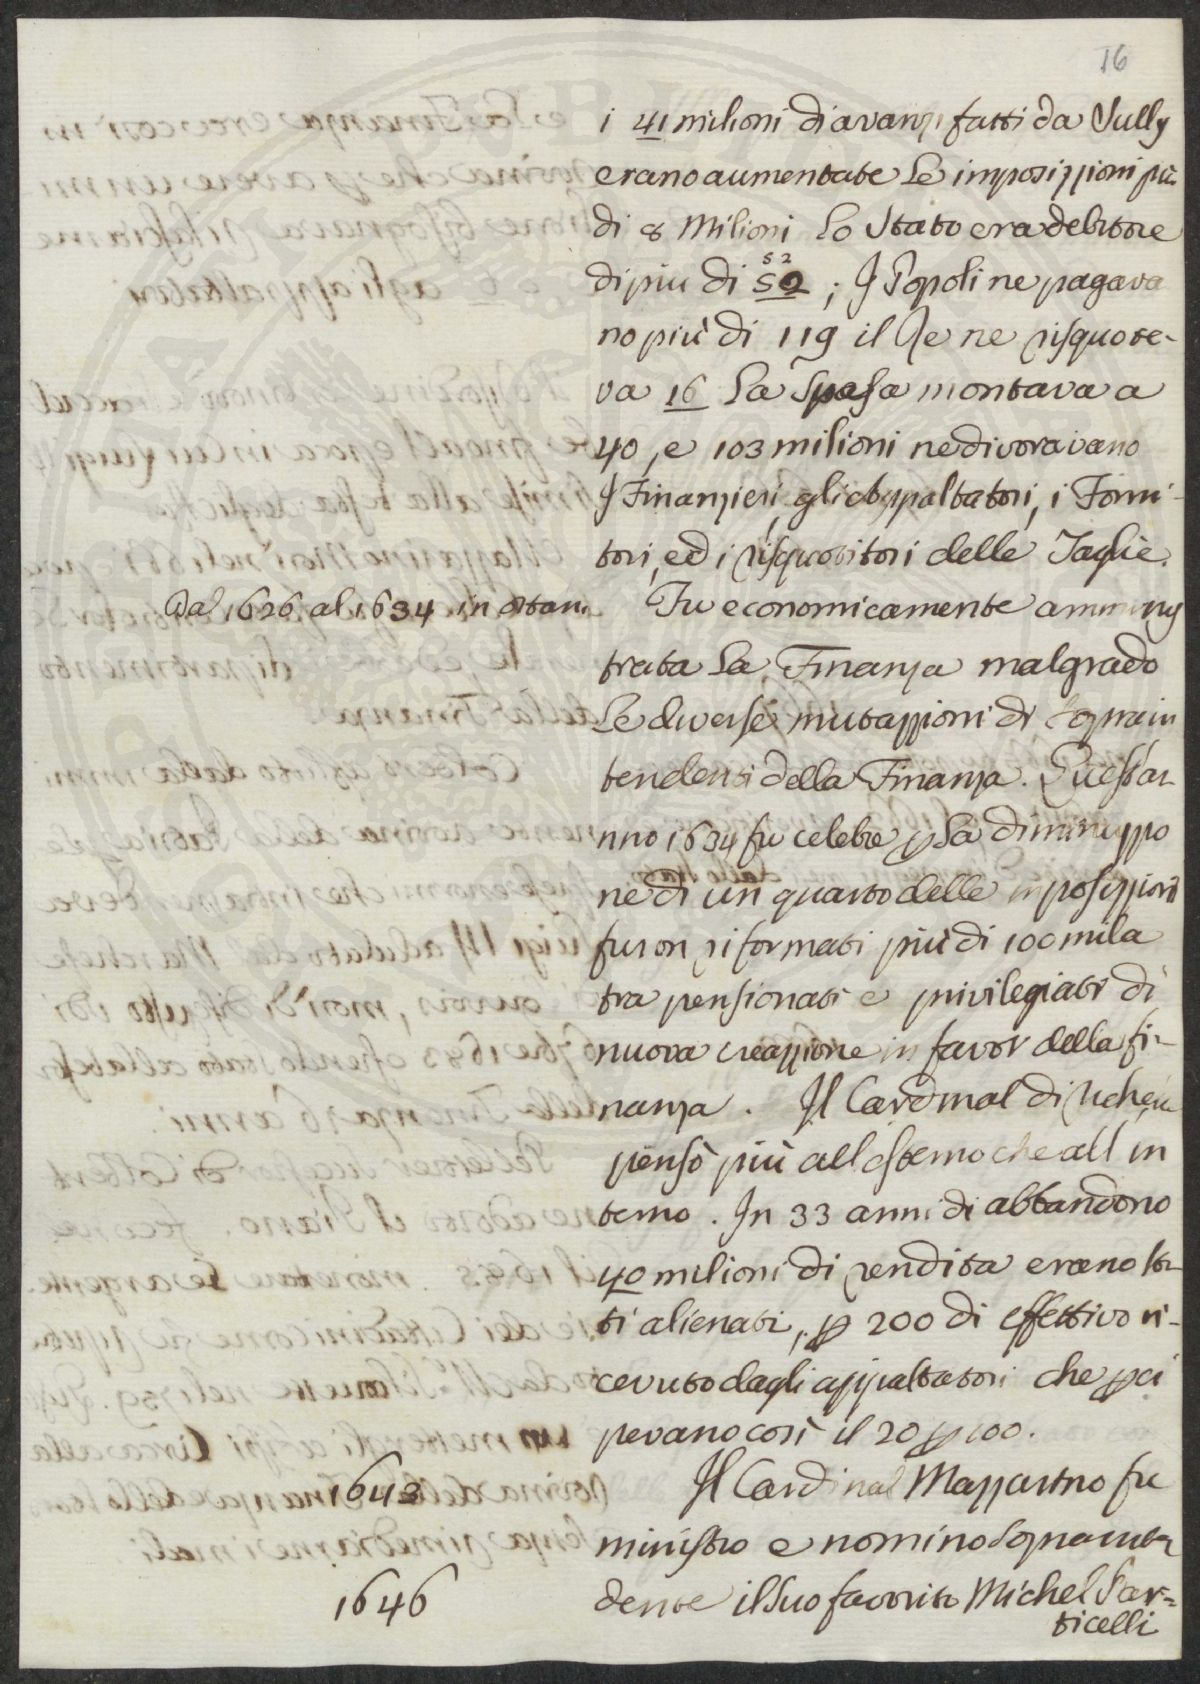 16
i 41 milioni di avanzi fatti da Sully
erano aumentate le imposizzioni più
di 8 Milioni Lo Stato era debitore
52
di più di 52 ; I Popoli ne pagava
no più di 119 il Re ne risquote-
va 16 La Spesa montava a
40, e 103 milioni ne divoravano
I Finanzieri, gli Appaltatori, i Forni-
tori, ed i risquotitori delle Taglie.
Dal 1626 al 1634 in 8 tani Fu economicamente amminis
trata La Finanza malgrado
Le diverse mutazzioni di Soprain
tendenti della Finanza. Quest'an-
nno 1634 fu celebre p La diminuzzio
ne di un quarto delle imposizzioni
furon riformati più di 100 mila
tra pensionati e privilegiati di
nuova creazzione in favor della fi-
nanza. Il Cardinal di
pensò più all esterno che all in
terno. In 33 anni di abbandono
40 milioni di rendita erano sta-
ti alienati, p 200 di effettivo ri-
cevuto dagli appaltatori che perci
pevano così il 20 p 100.
1643 Il Cardinal Mazzarino fu
ministro e nominò
1646 dente il Suo favorito Michel Par=
ticelli